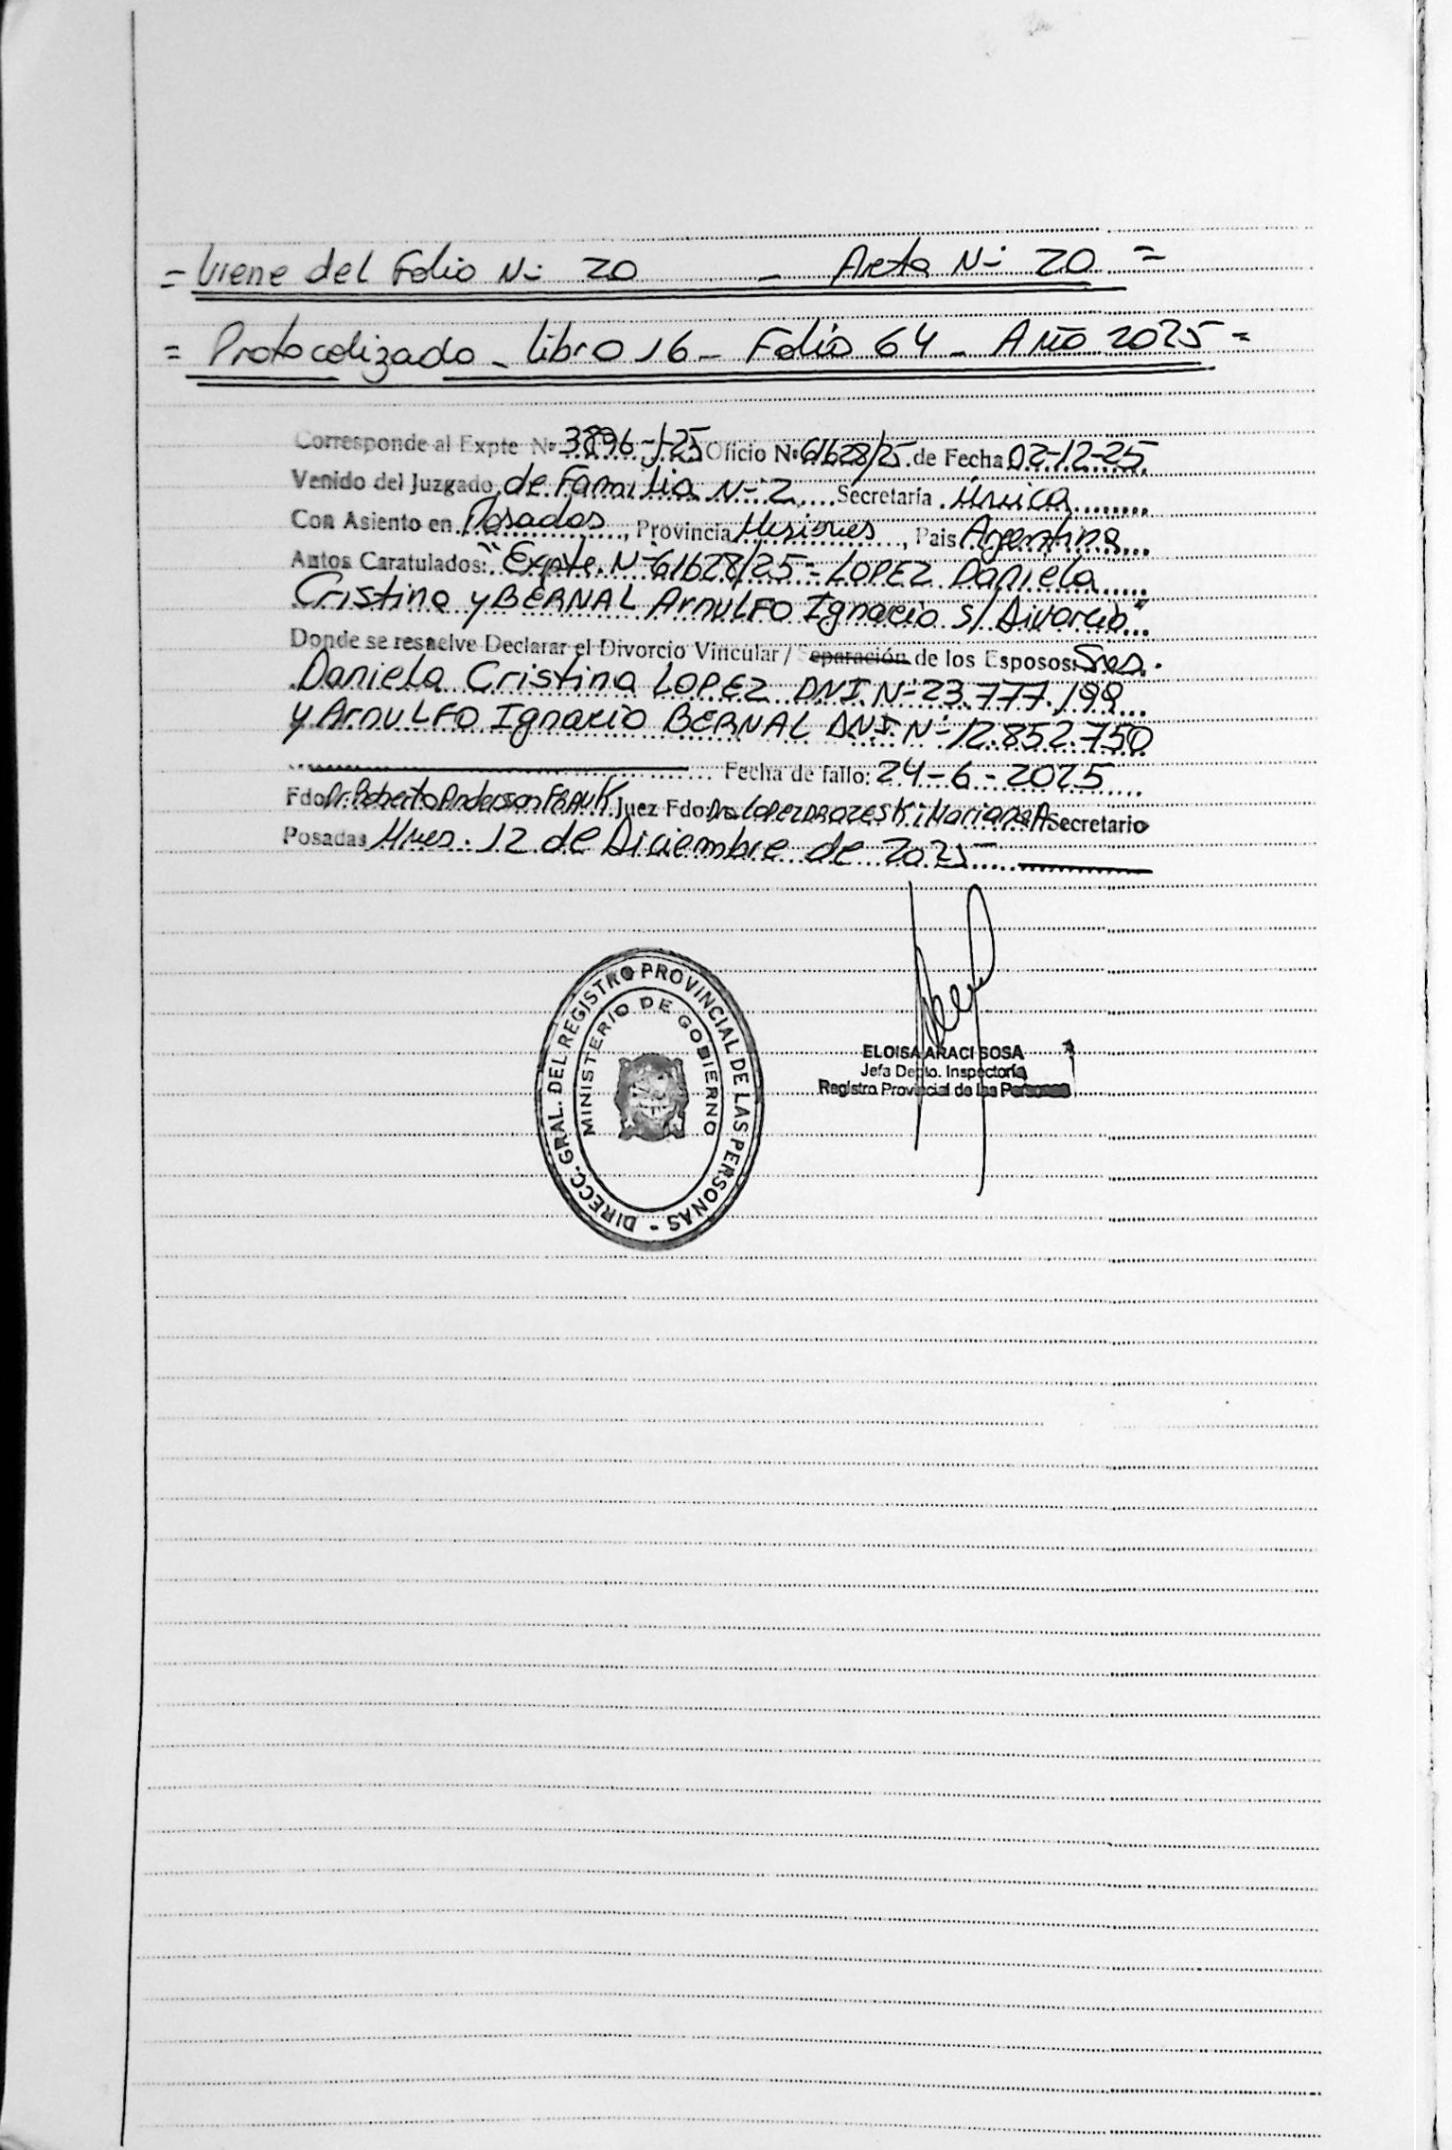 = Viene del Folio Nº 20 - Acta Nº 20 =
= Protocolizado - libro 16 - Folio 64 - Año 2025 =
Corresponde al Expte Nº 3896-J-25 Oficio Nº 61628/25 de Fecha 02-12-25
Venido del Juzgado de Familia Nº 2 Secretaría Única
Con Asiento en Posadas, Provincia Misiones, Pais Argentina
Autos Caratulados: "Expte. Nº 61628/25 - LOPEZ Daniela
Cristina y BERNAL Arnulfo Ignacio s/ Divorcio"
Donde se resuelve Declarar el Divorcio Vincular / Separación de los Esposos: Sres.
Daniela Cristina LOPEZ DNI Nº 23.777.199
y Arnulfo Ignacio BERNAL DNI Nº 12.852.750
Fecha de fallo: 24-6-2025
Fdo Dr. Roberto Anderson FRANK Juez Fdo Dra. LOPEZ DROZESKI Mariana A Secretario
Posadas Mnes. 12 de Diciembre de 2025
DIRECC. GRAL. DEL REGISTRO PROVINCIAL DE LAS PERSONAS -
MINISTERIO DE GOBIERNO
ELOISA ARACI SOSA
Jefa Depto. Inspectoría
Registro Provincial de las Personas